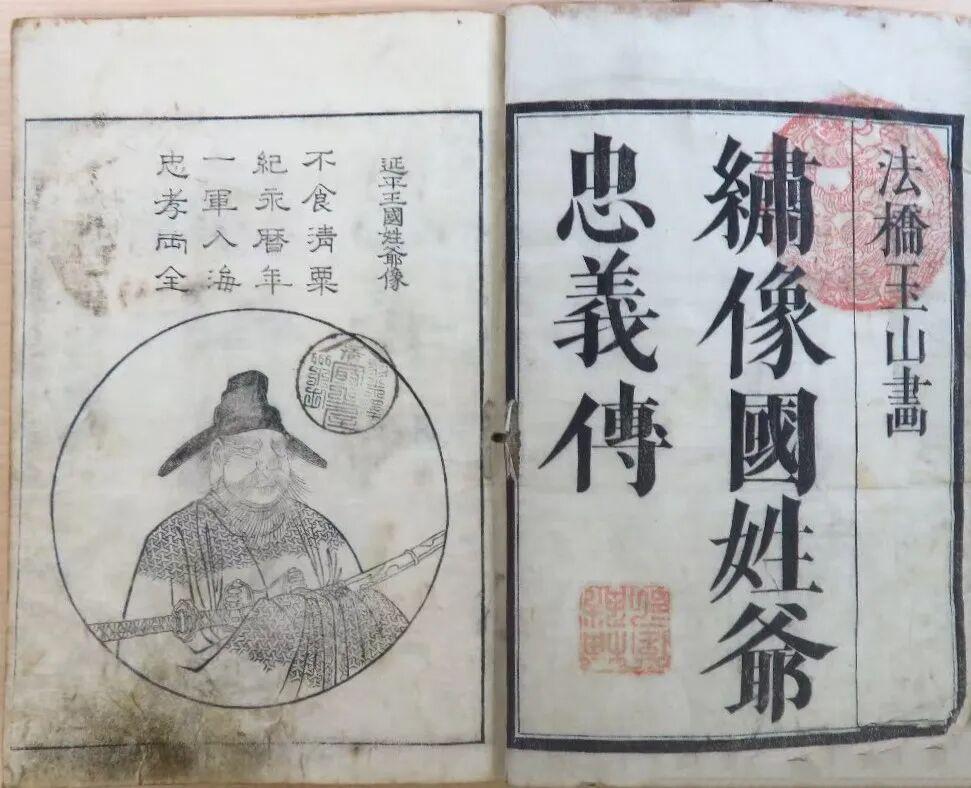 法橋玉山畫
繡像國姓爺
忠義傳
延平王國姓爺像
不食清粟
紀永曆年
一軍入海
忠孝両全